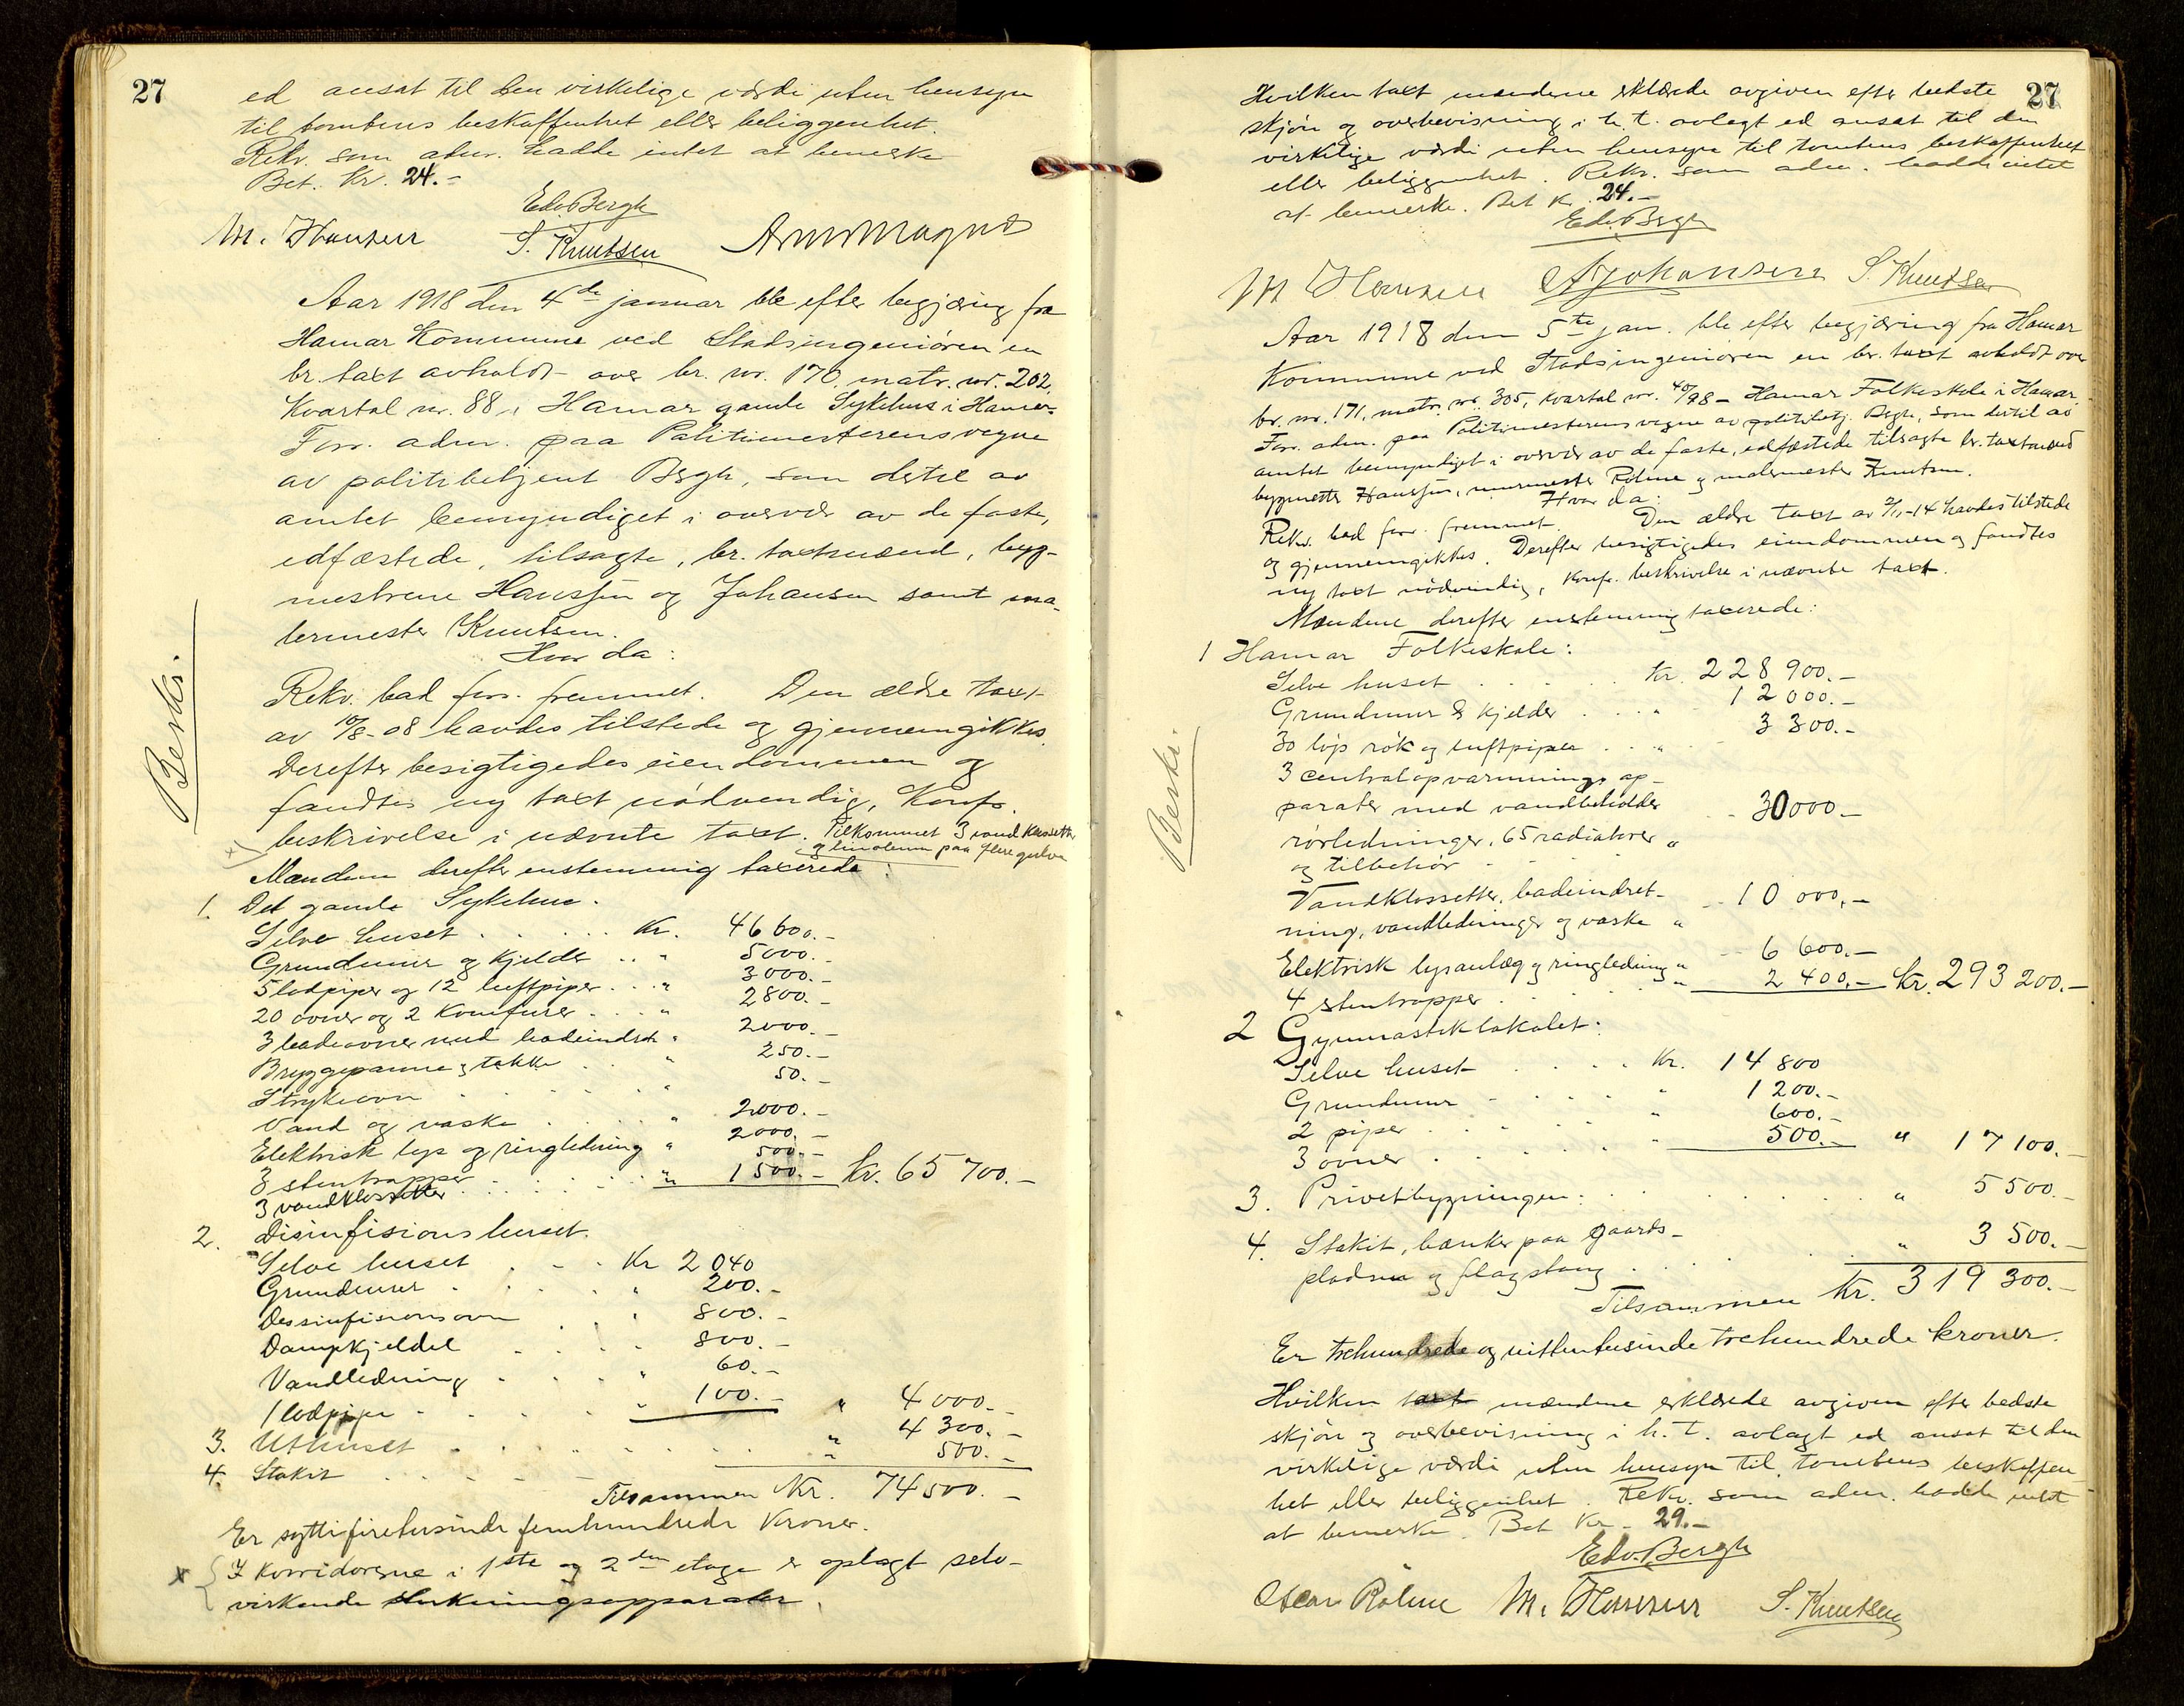 27
ed ansat til den virkelige værdi uten hensyn
til tomtens beskaffenhet eller beliggenhet.
Rekv. som adm. hadde intet at bemerke
Bet. Kr. 24.-
Edv. Bergh
M. Hansen S. Knutsen
Aar 1918 den 4de januar ble efter begjæring fra
Hamar Kommune ved Stadsingeniøren en
br. taxt avholdt over br. nr. 170. matr. nr. 202,
Kvartal nr. 88, Hamar gamle Sykehus i Hamar.
Forr. adm. paa Politimesterens vegne
av politibetjent Bergh, som dertil av
amtet bemyndiget i overvær av de faste,
edfæstede, tilsagte, br. taxtmænd, byg-
mestrene Hansen og Johansen samt ma-
lermester Knutsen.
Hvor da:
Beskr.
Rekv. bad forr. fremmet. Den ældre taxt
av 10/8-08 havdes tilstede og gjennemgikkes.
Derefter besigtigedes eiendommen og
fandtes ny taxt nødvendig, Konfr.
beskrivelse i nævnte taxt. Tilkommet 3 vandklosetter
og linoleum paa flere gulve
Mændene derefter enstemmig taxerede:
1. Det gamle Sykehus.
Selve huset . . . . . Kr. 46 600.-
Grundmur og Kjelder . . " 5000.-
5 lodpiper og 12 luftpiper . . . " 3000.-
20 ovner og 2 Komfurer . . . " 2800.-
3 badeovner med badeindretn. " 2000.-
Bryggepanne & takke . . " 250.-
Strykeovn . . . . . " 50.-
Vand og vaske . . . . " 2000.-
Elektrisk lys og ringledning " 2000.-
3 stentrapper . . . . " 500.-
3 vandklosetter . . . . . " 1500.- Kr. 65 700.-
2. Disinfisionshuset.
Selve huset . . . Kr 2 040
Grundmur . . . . " 200.-
Dessinfisionsovn . . " 800.-
Dampkjeldel . . . . 800.-
Vandledning . . . " 60.-
1 lodpipe . . . . . " 100.- " 4 000.-
3. Uthuset . . . . . . . . " 4 300.-
4. Stakit . . . . . . " 500.-
Tilsammen Kr. 74 500.-
Er syttifiretusinde femhundrede Kroner.
x I Korridorerne i 1ste og 2den etage er oplagt selv-
virkende slukningsapparater.
27
Hvilken taxt mændene erklærede avgiven efter bedste
skjøn og overbevisning i h. t. avlagt ed ansat til den
virkelige værdi uten hensyn til tomtens beskaffenhet
eller beliggenhet. Rekv. som adm. hadde intet
at bemerke. Bet Kr. 24.-
Edv. Bergh
M Hansen A Johansen S. Knutsen
Aar 1918 den 5te jan. ble efter begjæring fra Hamar
Kommune ved Stadsingeniøren en br. taxt avholdt over
br. nr. 171, matr. nr. 305, kvartal nr. 40/98 - Hamar Folkeskole i Hamar.
Forr. adm. paa Politimesterens vegne av politibetj. Bergh, som dertil av
amtet bemyndiget i overvær av de faste, edfæstede tilsagte br. taxtmænd
bygmester Hansen, murmester Rølme og malermester Knutsen.
Hvor da:
Beskr.
Rekv. bad forr. fremmet. Den ældre taxt av 2/1-14 havdes tilstede
og gjennemgikkes. Derefter besigtigedes eiendommen og fandtes
ny taxt nødvendig, Konfr. beskrivelse i nævnte taxt.
Mændene derefter enstemmig taxerede:
1 Hamar Folkeskole:
Selve huset . . . . Kr. 228 900.-
Grundmur & Kjelder . . . " 12 000.-
30 løps røk og luftpiper . . " 3 300.-
3 centralopvarmnings ap-
parater med vandbeholder
rørledninger, 65 radiatorer " 30 000.-
og tilbehør
Vandklossetter, badeindret-
ning, vandledninger og vaske " 10 000.-
Elektrisk lysanlæg og ringledning " 6 600.-
4 stentrapper . . . . " 2 400.- Kr. 293 200.-
2 Gymnastiklokalet:
Selve huset . . . . Kr. 14 800
Grundmur . . . . " 1 200.-
2 piper . . . . . " 600.-
3 ovner . . . . . " 500.- " 17 100.-
3. Privetbygningen: . . . . . . " 5 500.-
4. Stakit, bænker paa gaards-
pladsen og flagstang . . . . " 3 500.-
Tilsammen Kr. 319 300.-
Er trehundrede og nittentusinde trehundrede kroner.
Hvilken taxt mændene erklærede avgiven efter bedste
skjøn og overbevisning i h. t. avlagt ed ansat til den
virkelige værdi uten hensyn til tomtens beskaffen
het eller beliggenhet. Rekv. som adm. hadde intet
at bemerke. Bet Kr. 29.-
Edv. Bergh
Oscar Rølme M. Hansen S. Knutsen